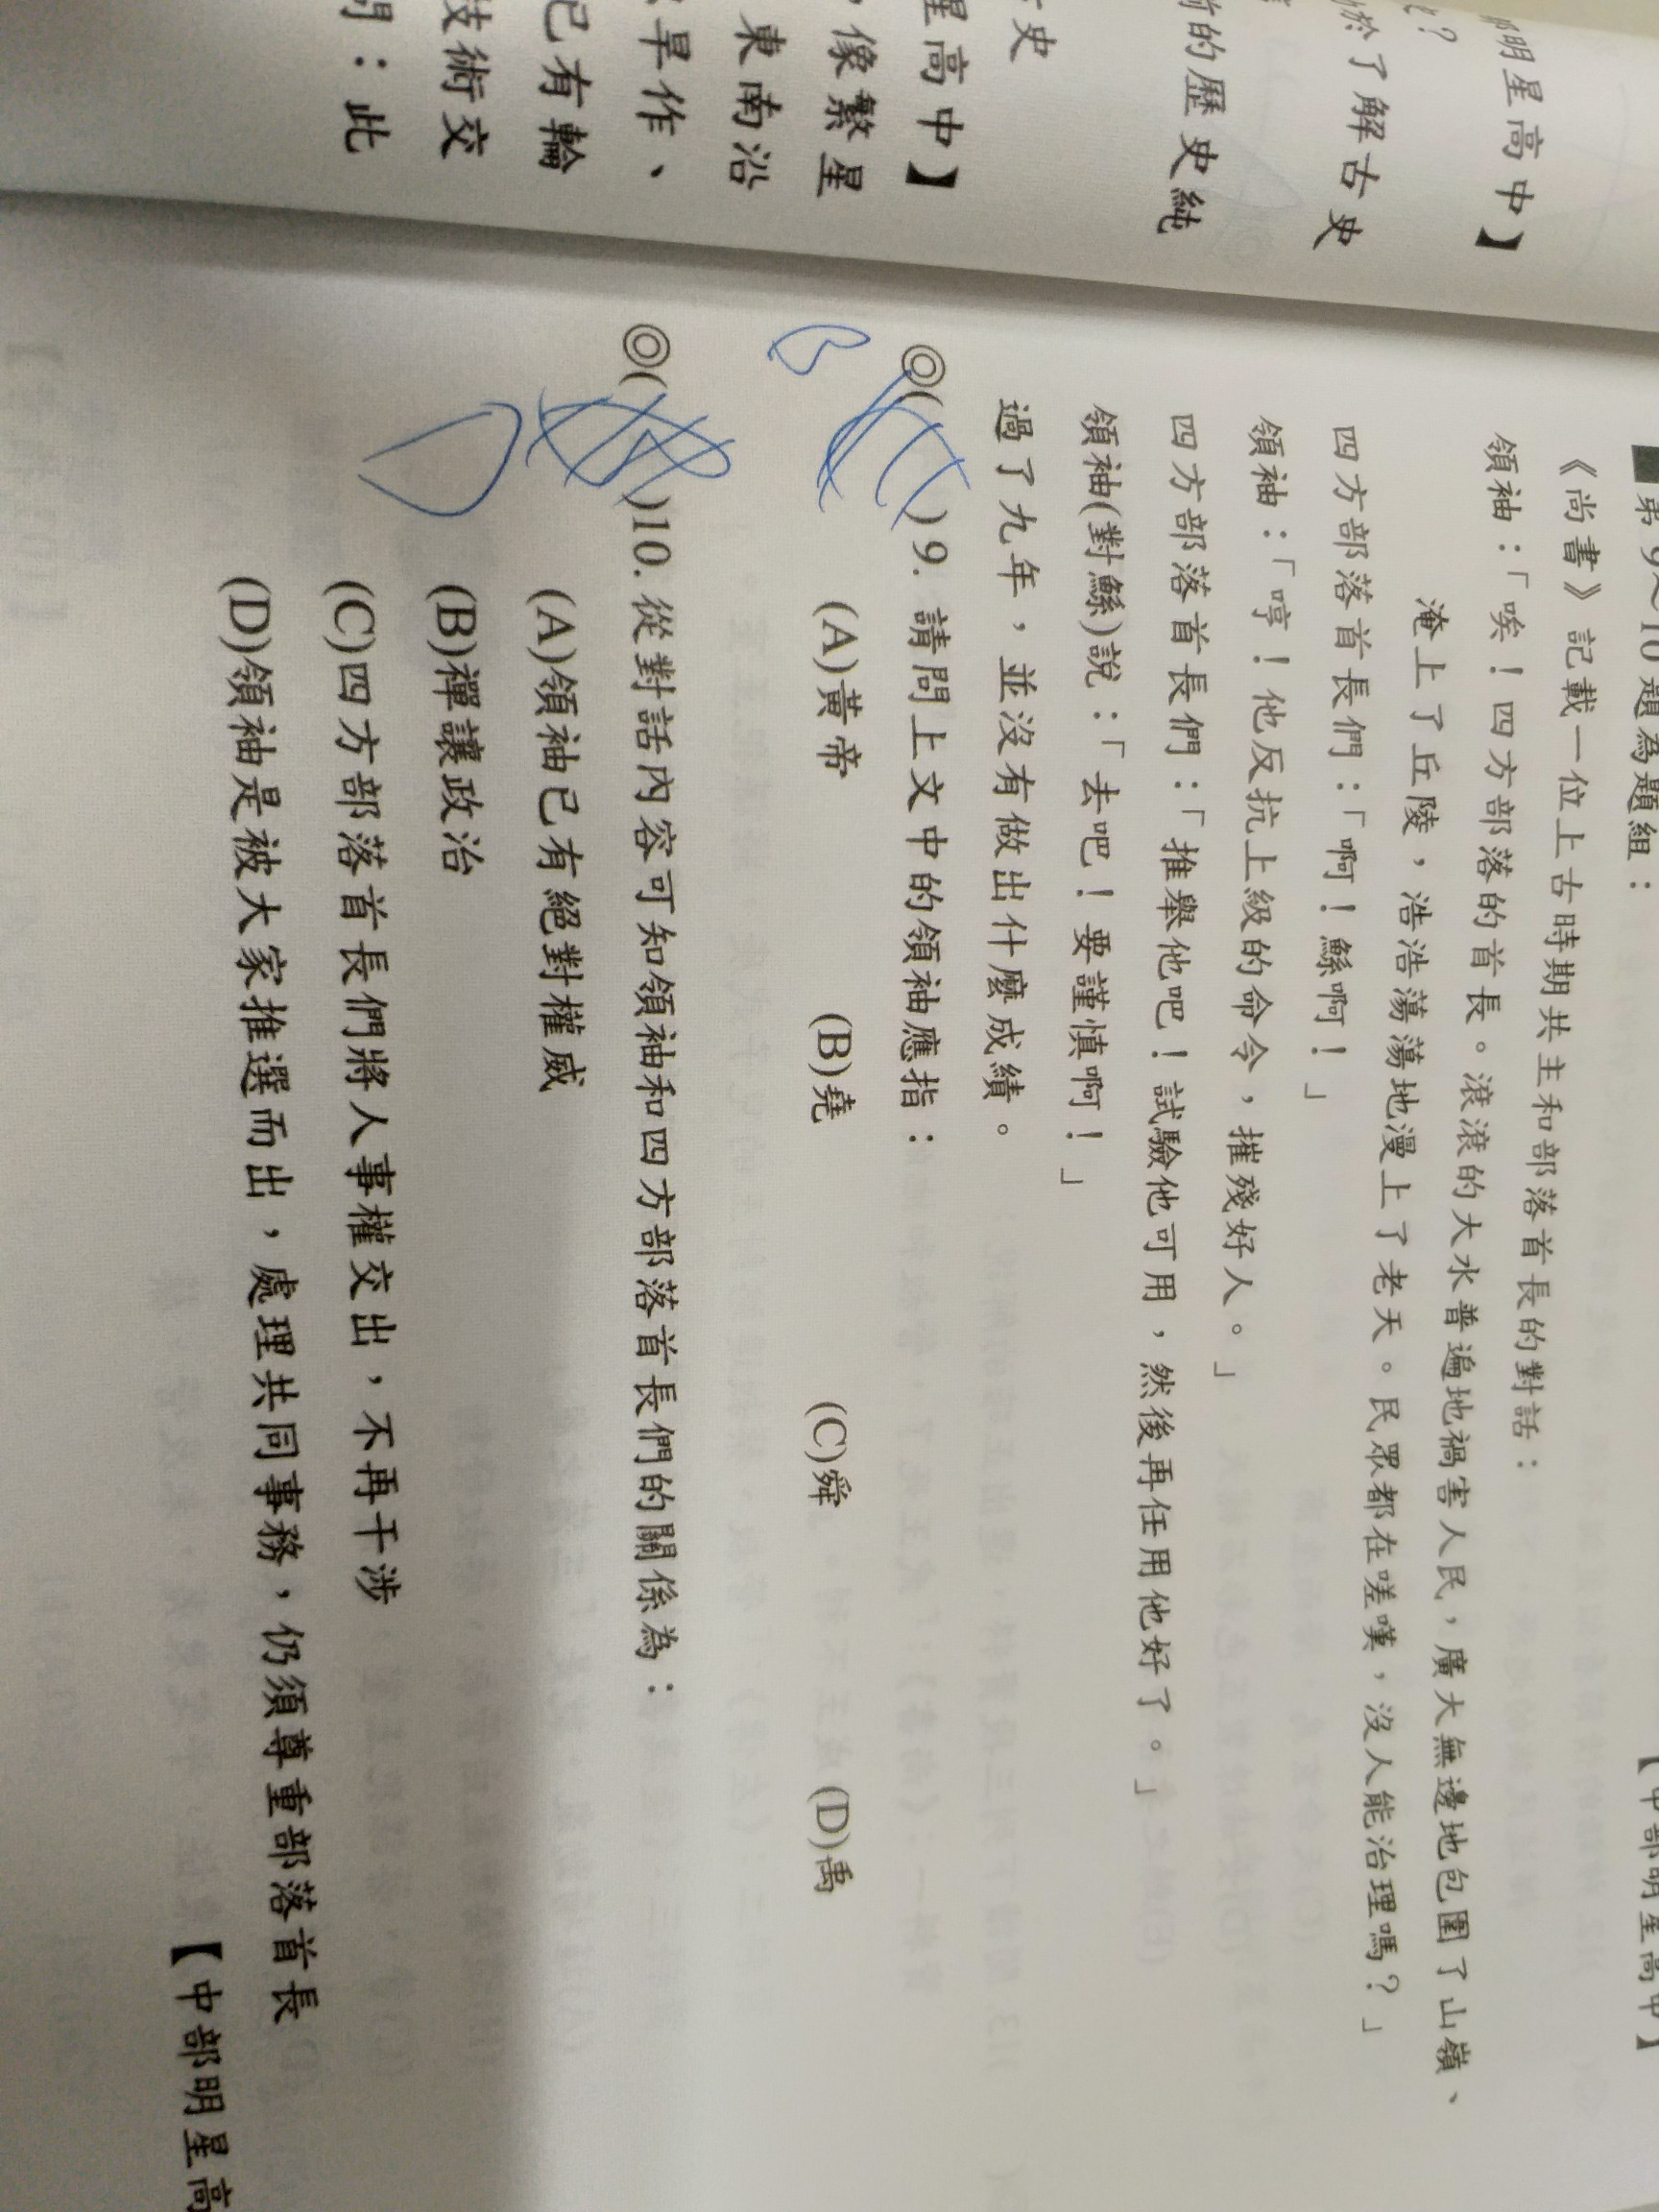 明星高中】
於了解古史
前的歷史純
史
星高中】
，像繁星
東南沿
旱作、
已有輪
技術交
：此
第9~10題為題組：
【中部明星高中】
《尚書》記載一位上古時期共主和部落首長的對話：
領袖：「唉！四方部落的首長。滾滾的大水普遍地禍害人民，廣大無邊地包圍了山嶺、
淹上了丘陵，浩浩蕩蕩地漫上了老天。民眾都在嗟嘆，沒人能治理嗎？」
四方部落首長們：「啊！鯀啊！」
領袖：「哼！他反抗上級的命令，摧殘好人。」
四方部落首長們：「推舉他吧！試驗他可用，然後再任用他好了。」
領袖(對鯀)說：「去吧！要謹慎啊！」
過了九年，並沒有做出什麼成績。
◎( )9. 請問上文中的領袖應指：
B
(A)黃帝 (B)堯 (C)舜 (D)禹
◎( )10. 從對話內容可知領袖和四方部落首長們的關係為：
D
(A)領袖已有絕對權威
(B)禪讓政治
(C)四方部落首長們將人事權交出，不再干涉
(D)領袖是被大家推選而出，處理共同事務，仍須尊重部落首長
【中部明星高